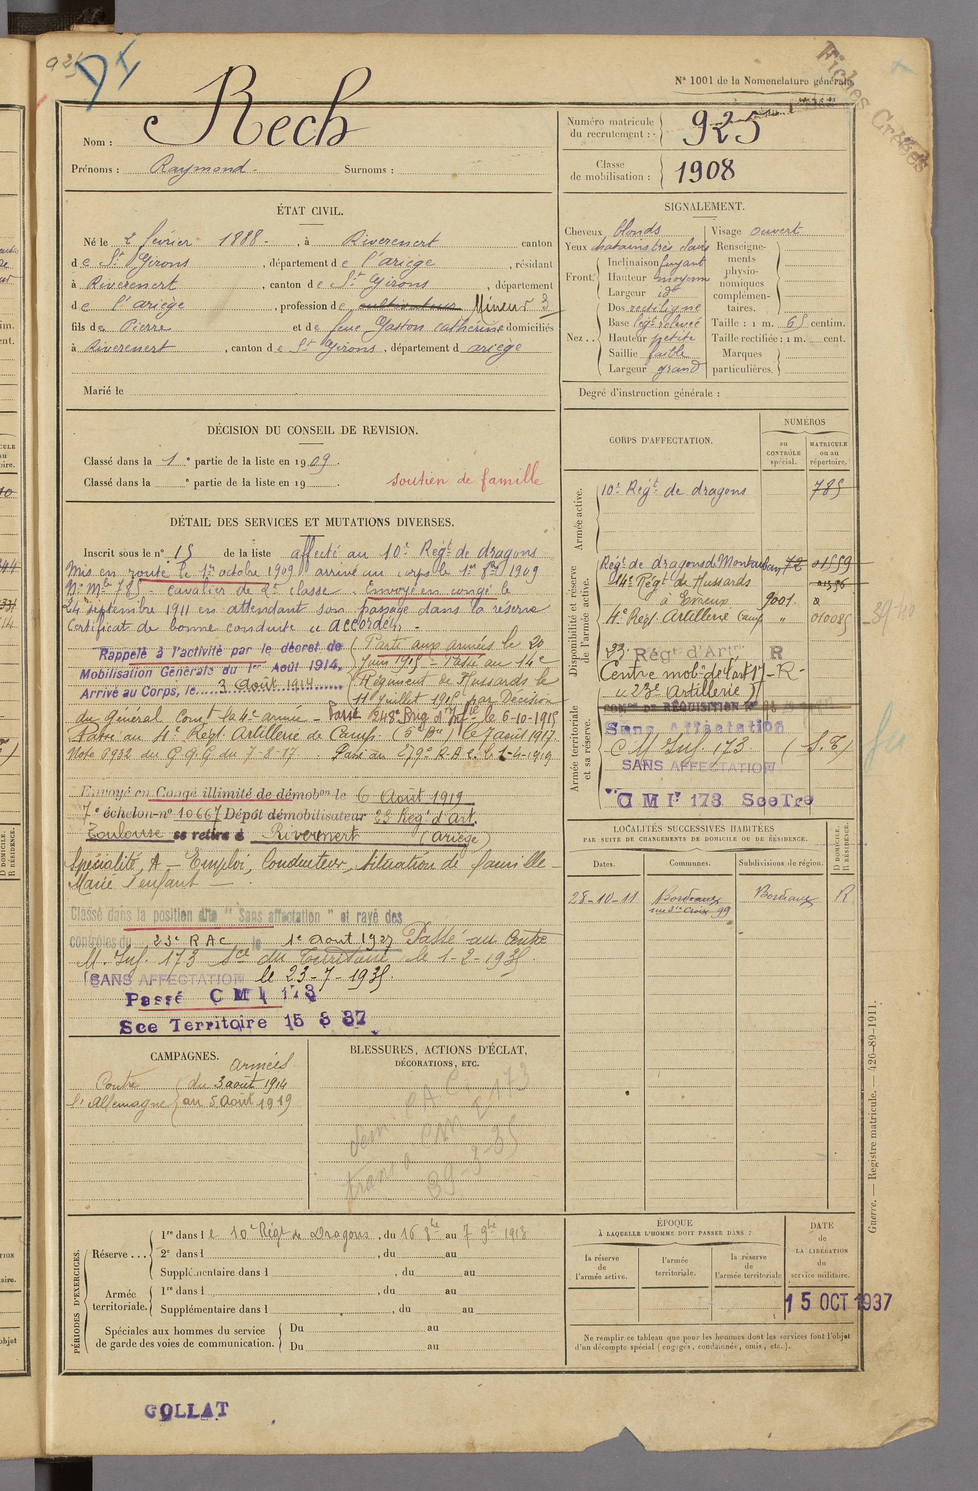 925
N° 1001 de la Nomenclature générale
Fiches Créées
Nom : Rech
Prénoms : Raymond - Surnoms :
Numéro matricule du recrutement : 925
Classe de mobilisation : 1908
ÉTAT CIVIL.
Né le 2 février 1888 - , à Riverenert canton
de St Girons , département de l'ariège , résidant
à Riverenert , canton de St Girons , département
de l'ariège , profession de cultivateur Mineur 3
fils de Pierre et de feue Gaston Catherine domiciliés
à Riverenert , canton de St Girons , département d ariège
Marié le
SIGNALEMENT.
Cheveux blonds Visage ouvert
Yeux chatains très clairs Renseigne-
ments
physio-
nomiques
complémen-
taires.
Front. Inclinaison fuyant
Hauteur moyenne
Largeur id
Nez . . Dos rectiligne
Base légt relevée
Hauteur petite
Saillie faible
Largeur grand
Taille : 1 m. 65 centim.
Taille rectifiée : 1 m. cent.
Marques particulières.
Degré d'instruction générale :
DÉCISION DU CONSEIL DE REVISION.
Classé dans la 1 e partie de la liste en 1909.
Classé dans la e partie de la liste en 19 .
soutien de famille
DÉTAIL DES SERVICES ET MUTATIONS DIVERSES.
Inscrit sous le n° 15 de la liste affecté au 10e Régt de dragons
Mis en route le 1er octobre 1909 arrivé au corps le 1er 8bre 1909
N° Mle 785 - cavalier de 2e classe . Envoyé en congé le
24 septembre 1911 en attendant son passage dans la réserve
Certificat de bonne conduite "accordé" -
Rappelé à l'activité par le décret de
Mobilisation Générale du 1er Août 1914.
Arrivé au Corps, le 3 Août 1914
Parti aux armées le 20
Juin 1915 - Passé au 14e
Régiment de Hussards le
11 Juillet 1915 par Décision
du Général Comt la 4e armée - Passé 248e Brig d'Infie le 6-10-1915
Passé au 4e Régt Artillerie de Camp. (5e Bie) le 7 août 1917
Note 6932 du G.Q.G du 7-8-17 Passé au 279e R.A.C. le 1-4-1919
Envoyé en Congé illimité de démobon le 6 Août 1919
7e échelon-n° 10667 Dépôt démobilisateur 23 Régt d'Art.
Toulouse se retire à Rivernert (Ariège)
Spécialité, A - Emploi, Conducteur, Situation de famille -
Marié 1 enfant -
Classé dans la position dite " Sans affectation " et rayé des
contrôles du 23e RAC le 1e Août 1927 Passé au Centre
M. Inf. 173 Sce du Territoire le 1-2-1935.
SANS AFFECTATION le 23-7-1935.
Passé C M I 173
Sce Territoire 15 8 37
CORPS D'AFFECTATION.
NUMÉROS
au CONTRÔLE spécial.
MATRICULE ou au répertoire.
Armée active.
10e Régt de dragons 785
Disponibilité et réserve de l'armée active.
Régt de dragons de Montauban 72 01559
14e Régt de Hussards
à Evreux 9001
4e Régt Artillerie Camp " 010085
23 Régt d'Artie R
Centre mob. de l'art 17 - R -
"23e Artillerie"
Armée territoriale et sa réserve.
COMon DE RÉQUISITION N°
Sans affectation
C M Inf. 173 (S.T)
SANS AFFECTATION
C M I 173 Sce Tre
LOCALITÉS SUCCESSIVES HABITÉES
PAR SUITE DE CHANGEMENTS DE DOMICILE OU DE RÉSIDENCE.
Dates. Communes. Subdivisions de région. D DOMICILE. R RÉSIDENCE.
28-10-11 Bordeaux Bordeaux R
rue Ste Croix 99
CAMPAGNES.
Contre l'Allemagne
armées
du 3 août 1914
au 5 Août 1919
BLESSURES, ACTIONS D'ÉCLAT,
DÉCORATIONS, ETC.
PÉRIODES D'EXERCICES.
Réserve . . . 1re dans le 10e Régt de Dragons , du 16 8bre au 7 9bre 1913
2e dans l , du au
Supplémentaire dans l , du au
Armée territoriale. 1re dans l , du au
Supplémentaire dans l , du au
Spéciales aux hommes du service de garde des voies de communication. Du au
Du au
ÉPOQUE
À LAQUELLE L'HOMME DOIT PASSER DANS :
la réserve de l'armée active.
l'armée territoriale.
la réserve de l'armée territoriale
DATE de LA LIBÉRATION du service militaire.
15 OCT 1937
Ne remplir ce tableau que pour les hommes dont les services font l'objet
d'un décompte spécial (engagés, condamnés, omis, etc.).
Guerre. — Registre matricule. — 426-89-1911.
GOLLAT